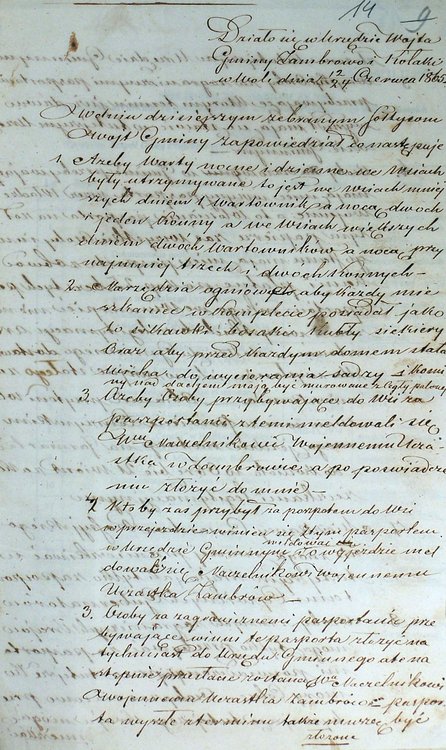 14 9
Działo się w Urzędzie Wójta
Gminy Zambrowo i Kołaki
w Woli dnia 12/24 Czerwca 1865
W dniu dzisiejszym zebranym Sołtysom
Wójt Gminy zapowiedział co następuje
1. Ażeby Warty nocne i dzienne we wsiach
były utrzymywane to jest we wsiach mniej
szych dniem 1 Wartownik a nocą dwóch
i jeden konny a we wsiach większych
dniem dwóch Wartowników a nocą przy
najmniej trzech i dwóch konnych
2. Narzędzia ogniowe aby każdy mie
szkaniec w komplecie posiadał jako
to sikawki bosaki kubły siekiery
Oraz aby przed każdym domem stała
do wycierania sadzy i komi
ny nad dachem mają być murowane z Cegły palonej
3. Ażeby Osoby przybywające do Wsi za
pasportami z temi meldowali się
JWmu Naczelnikowi Wojennemu Ucza
stka w Zambrowie a po poświadcze
niu złożyć do mnie
4. Kto by zaś przybył za pasportem do Wsi
w przejeździe winien się z tym pasportem
meldować
w Urzędzie Gminnym i o wyjeździe mel
dować się Naczelnikowi Wojennemu
Uczastka Zambrow
5. Osoby za zagranicznemi pasportami prze
bywające winni te pasporta złożyć na
tychmiast do Urzędu Gminnego które na
stępnie przesłane zostaną JWmu Naczelnikowi
Wojennemu Uczastka Zambrow
ta wyszłe z terminu także muszą być
złożone